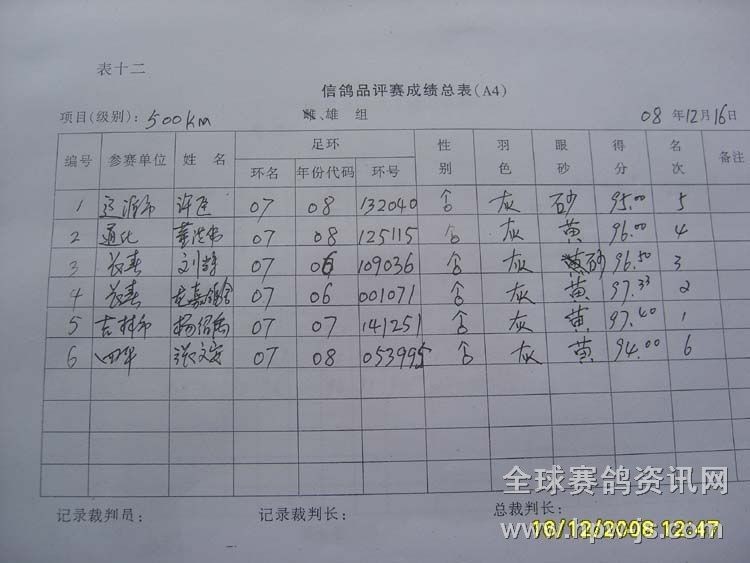 表十二
信鸽品评赛成绩总表(A4)
项目(级别): 500km 雌、雄 组 08 年12月16日
编号 参赛单位 姓 名 足环 性别 羽色 眼砂 得分 名次 备注
环名 年份代码 环号
1 07 08 132040 灰 砂 95.00 5
2 通化 07 08 125115 灰 黄 96.00 4
3 长春 07 06 109036 灰 黄砂 96.50 3
4 长春 07 06 001071 灰 黄 97.33 2
5 吉林市 07 07 141251 灰 黄 97.40 1
6 四平 张文安 07 08 053995 灰 黄 94.00 6
记录裁判员: 记录裁判长: 总裁判长:
全球赛鸽资讯网
16/12/2008 12:47